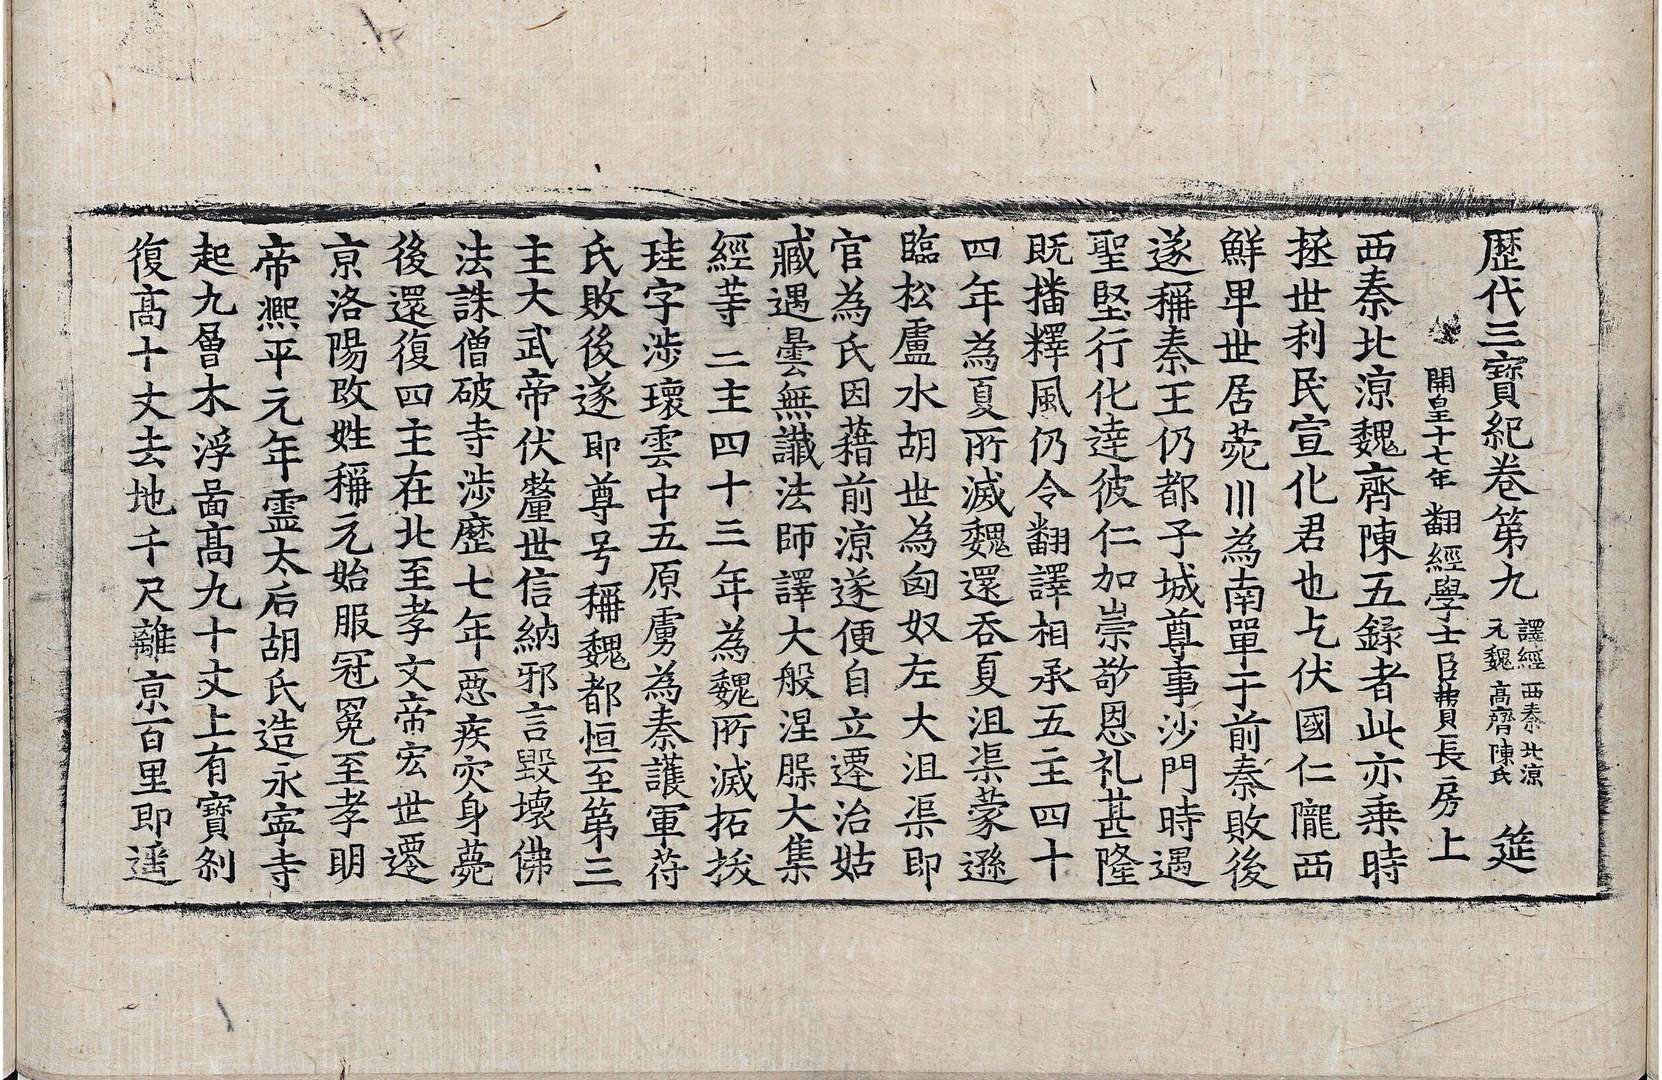 歷代三寶紀卷第九 譯經 西秦 北涼 元魏 高齊 陳氏 筵
開皇十七年 翻經學士臣費長房上
西秦北涼魏齊陳五録者此亦乘時
拯世利民宣化君也乞伏國仁隴西
鮮卑世居菀川為南單于前秦敗後
遂稱秦王仍都子城尊事沙門時遇
聖堅行化達彼仁加崇敬恩礼甚隆
既播釋風仍令翻譯相承五主四十
四年為夏所滅魏還吞夏沮渠蒙遜
臨松盧水胡世為匈奴左大沮渠即
官為氏因藉前涼遂便自立遷治姑
臧遇曇無讖法師譯大般涅槃大集
經等 二主四十三年為魏所滅拓拔
珪字涉壞雲中五原虜為秦護軍苻
氏敗後遂即尊号稱魏都恒至第三
主大武帝伏釐世信納邪言毀壞佛
法誅僧破寺涉歷七年惡疾灾身薨
後還復四主在北至孝文帝宏世遷
京洛陽改姓稱元始服冠冕至孝明
帝熙平元年靈太后胡氏造永寧寺
起九層木浮啚高九十丈上有寶剎
復高十丈去地千尺離京百里即遥